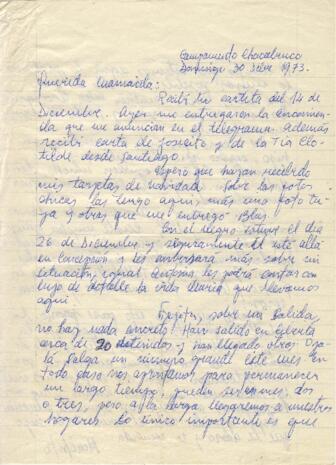 Campamento Chacabuco
Domingo 30 Dicbre 1973.
Querida Mamacita:
Recibí tu cartita del 14 de
Diciembre. Ayer me entregaron la encomien
da que me anuncian en el telegrama. Además
recibí carta de Joseito y de la Tía Clo-
tilde desde Santiago.
Espero que hayan recibido
mis tarjetas de navidad. Sobre las fotos
chicas las tengo aquí, más una foto tu-
ya y otras que me entregó Blas.
Con el negro estuve el día
26 de Diciembre y seguramente él esté allá
en Concepción y les conversará más sobre mi
situación, igual les podrá contar con
lujo de detalle la vida diaria que llevamos
aquí.
sobre mi salida,
no hay nada concreto. Han salido en libertad
cerca de 20 detenidos y han llegado otros. Oja
lá salga un número grande este mes. En
todo caso nos aprontamos para permanecer
un largo tiempo, pueden ser meses, dos
o tres, pero a la larga llegaremos a nuestros
hogares. Lo único importante es que